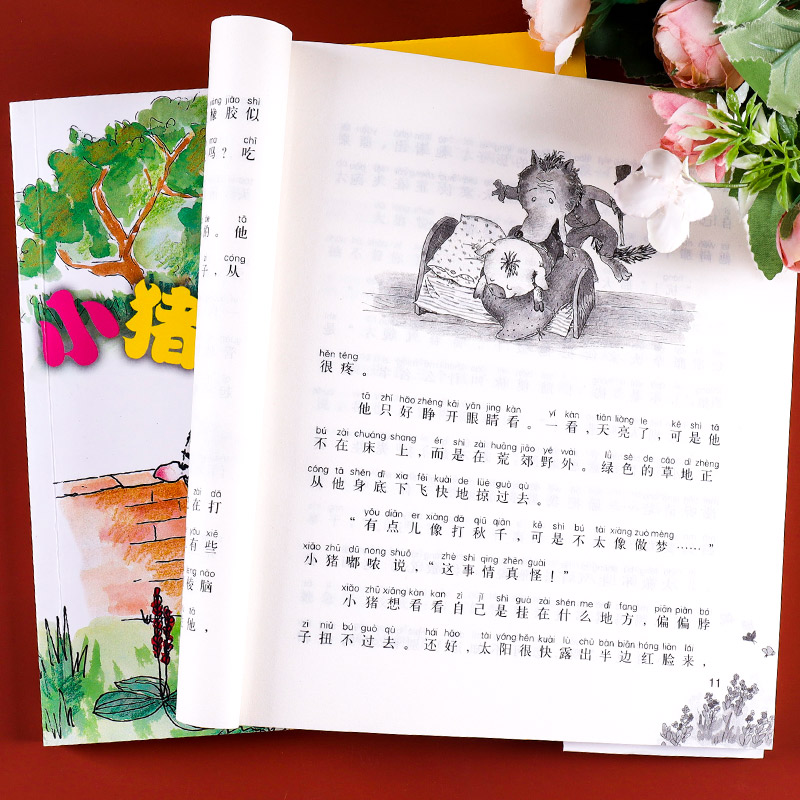 小猪
jiāo shì
胶似
chī
吗？吃
tā
他
cóng
子，从
zài dǎ
在打
yǒu xiē
有些
nǎo
脑
tā
他，
hěn téng
很疼。
tā zhǐ hǎo zhēng kāi yǎn jing kàn yí kàn tiān liàng le kě shì tā
他只好睁开眼睛看。一看，天亮了，可是他
bú zài chuáng shang ér shì zài huāng jiāo yě wài lǜ sè de cǎo dì zhèng
不在床上，而是在荒郊野外。绿色的草地正
cóng tā shēn dǐ xia fēi kuài de lüè guò qù
从他身底下飞快地掠过去。
yǒu diǎn er xiàng dǎ qiū qiān kě shì bú tài xiàng zuò mèng
“有点儿像打秋千，可是不太像做梦……”
xiǎo zhū dū nong shuō zhè shì qing zhēn guài
小猪嘟哝说，“这事情真怪！”
xiǎo zhū xiǎng kàn kan zì jǐ shì guà zài shén me dì fang piān piān bó
小猪想看看自己是挂在什么地方，偏偏脖
zi niǔ bú guò qù hái hǎo tài yáng hěn kuài lù chū bàn biān hóng liǎn lái
子扭不过去。还好，太阳很快露出半边红脸来，
11